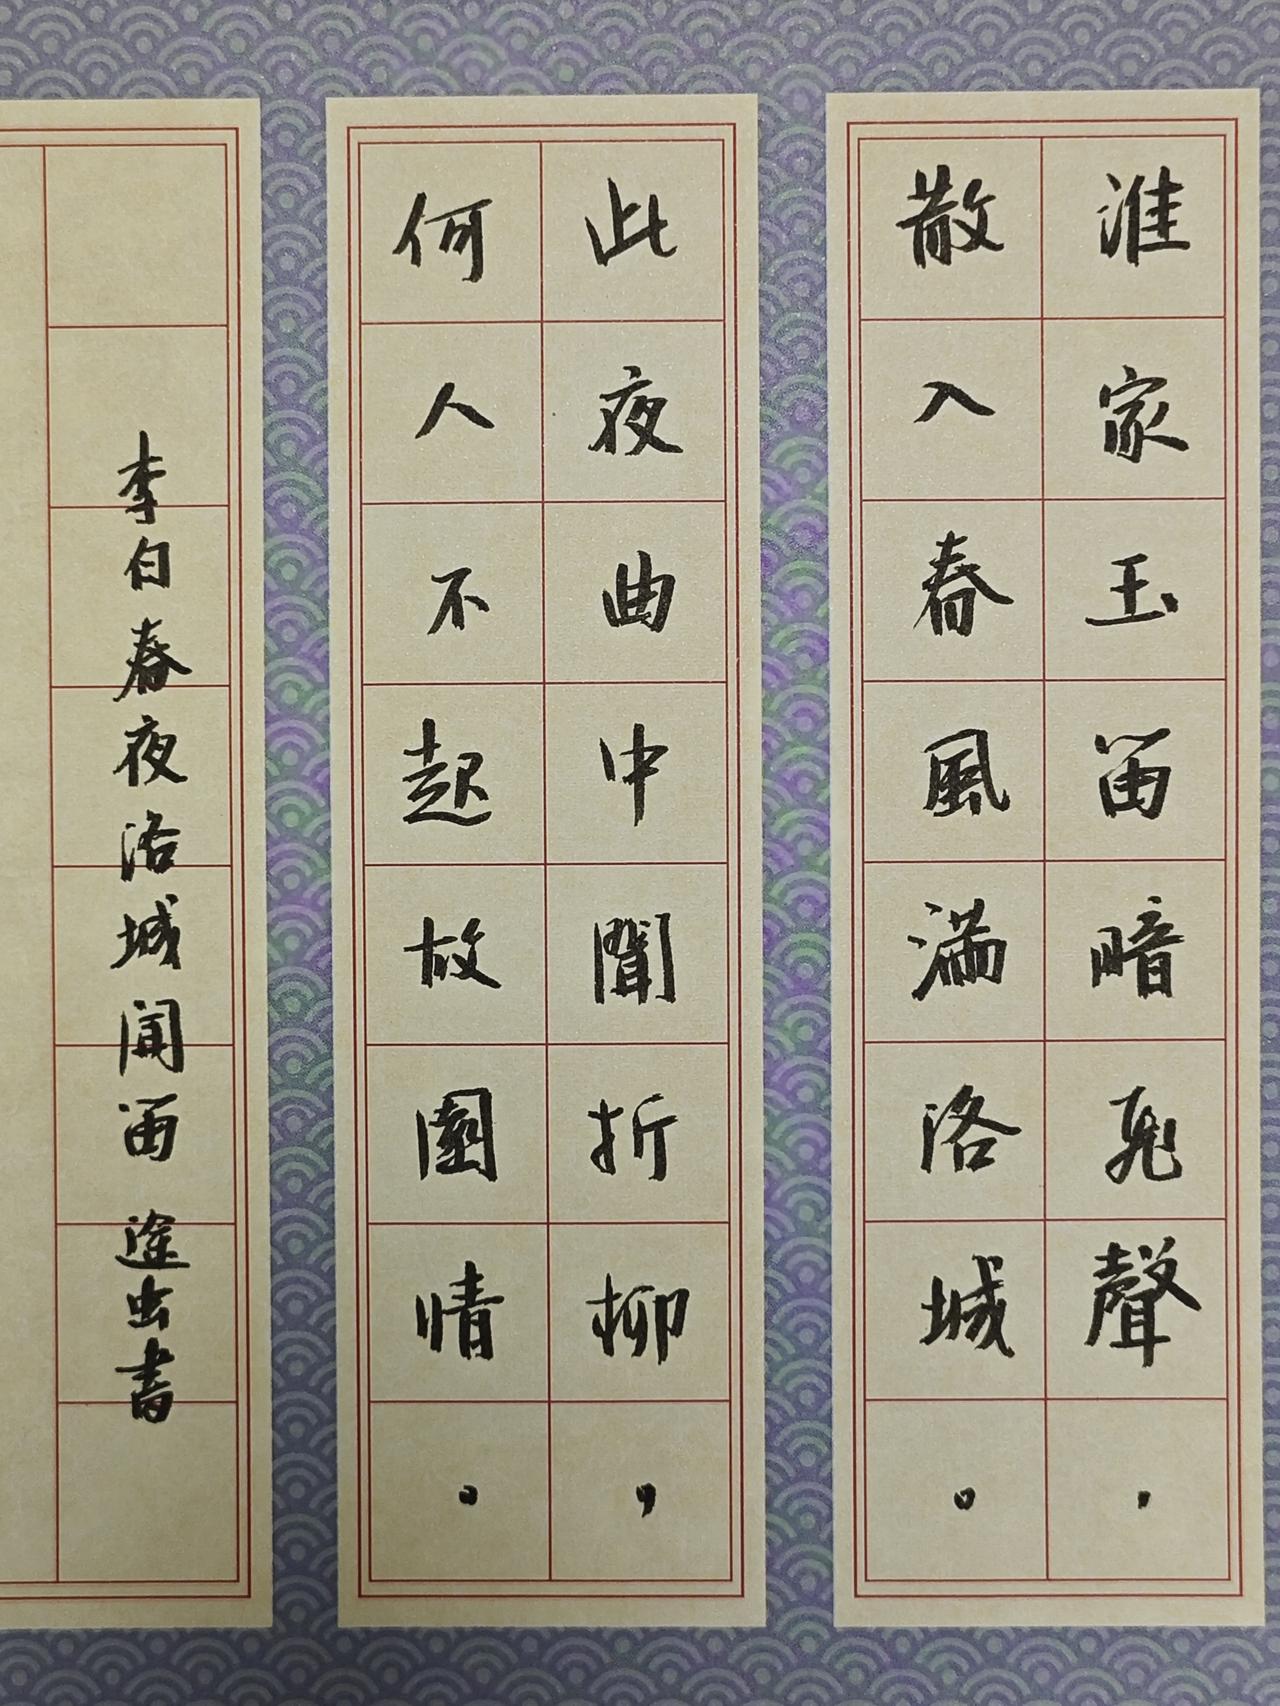 誰家玉笛暗飛聲，
散入春風滿洛城。
此夜曲中聞折柳，
何人不起故園情。
李白春夜洛城聞笛 途虫書